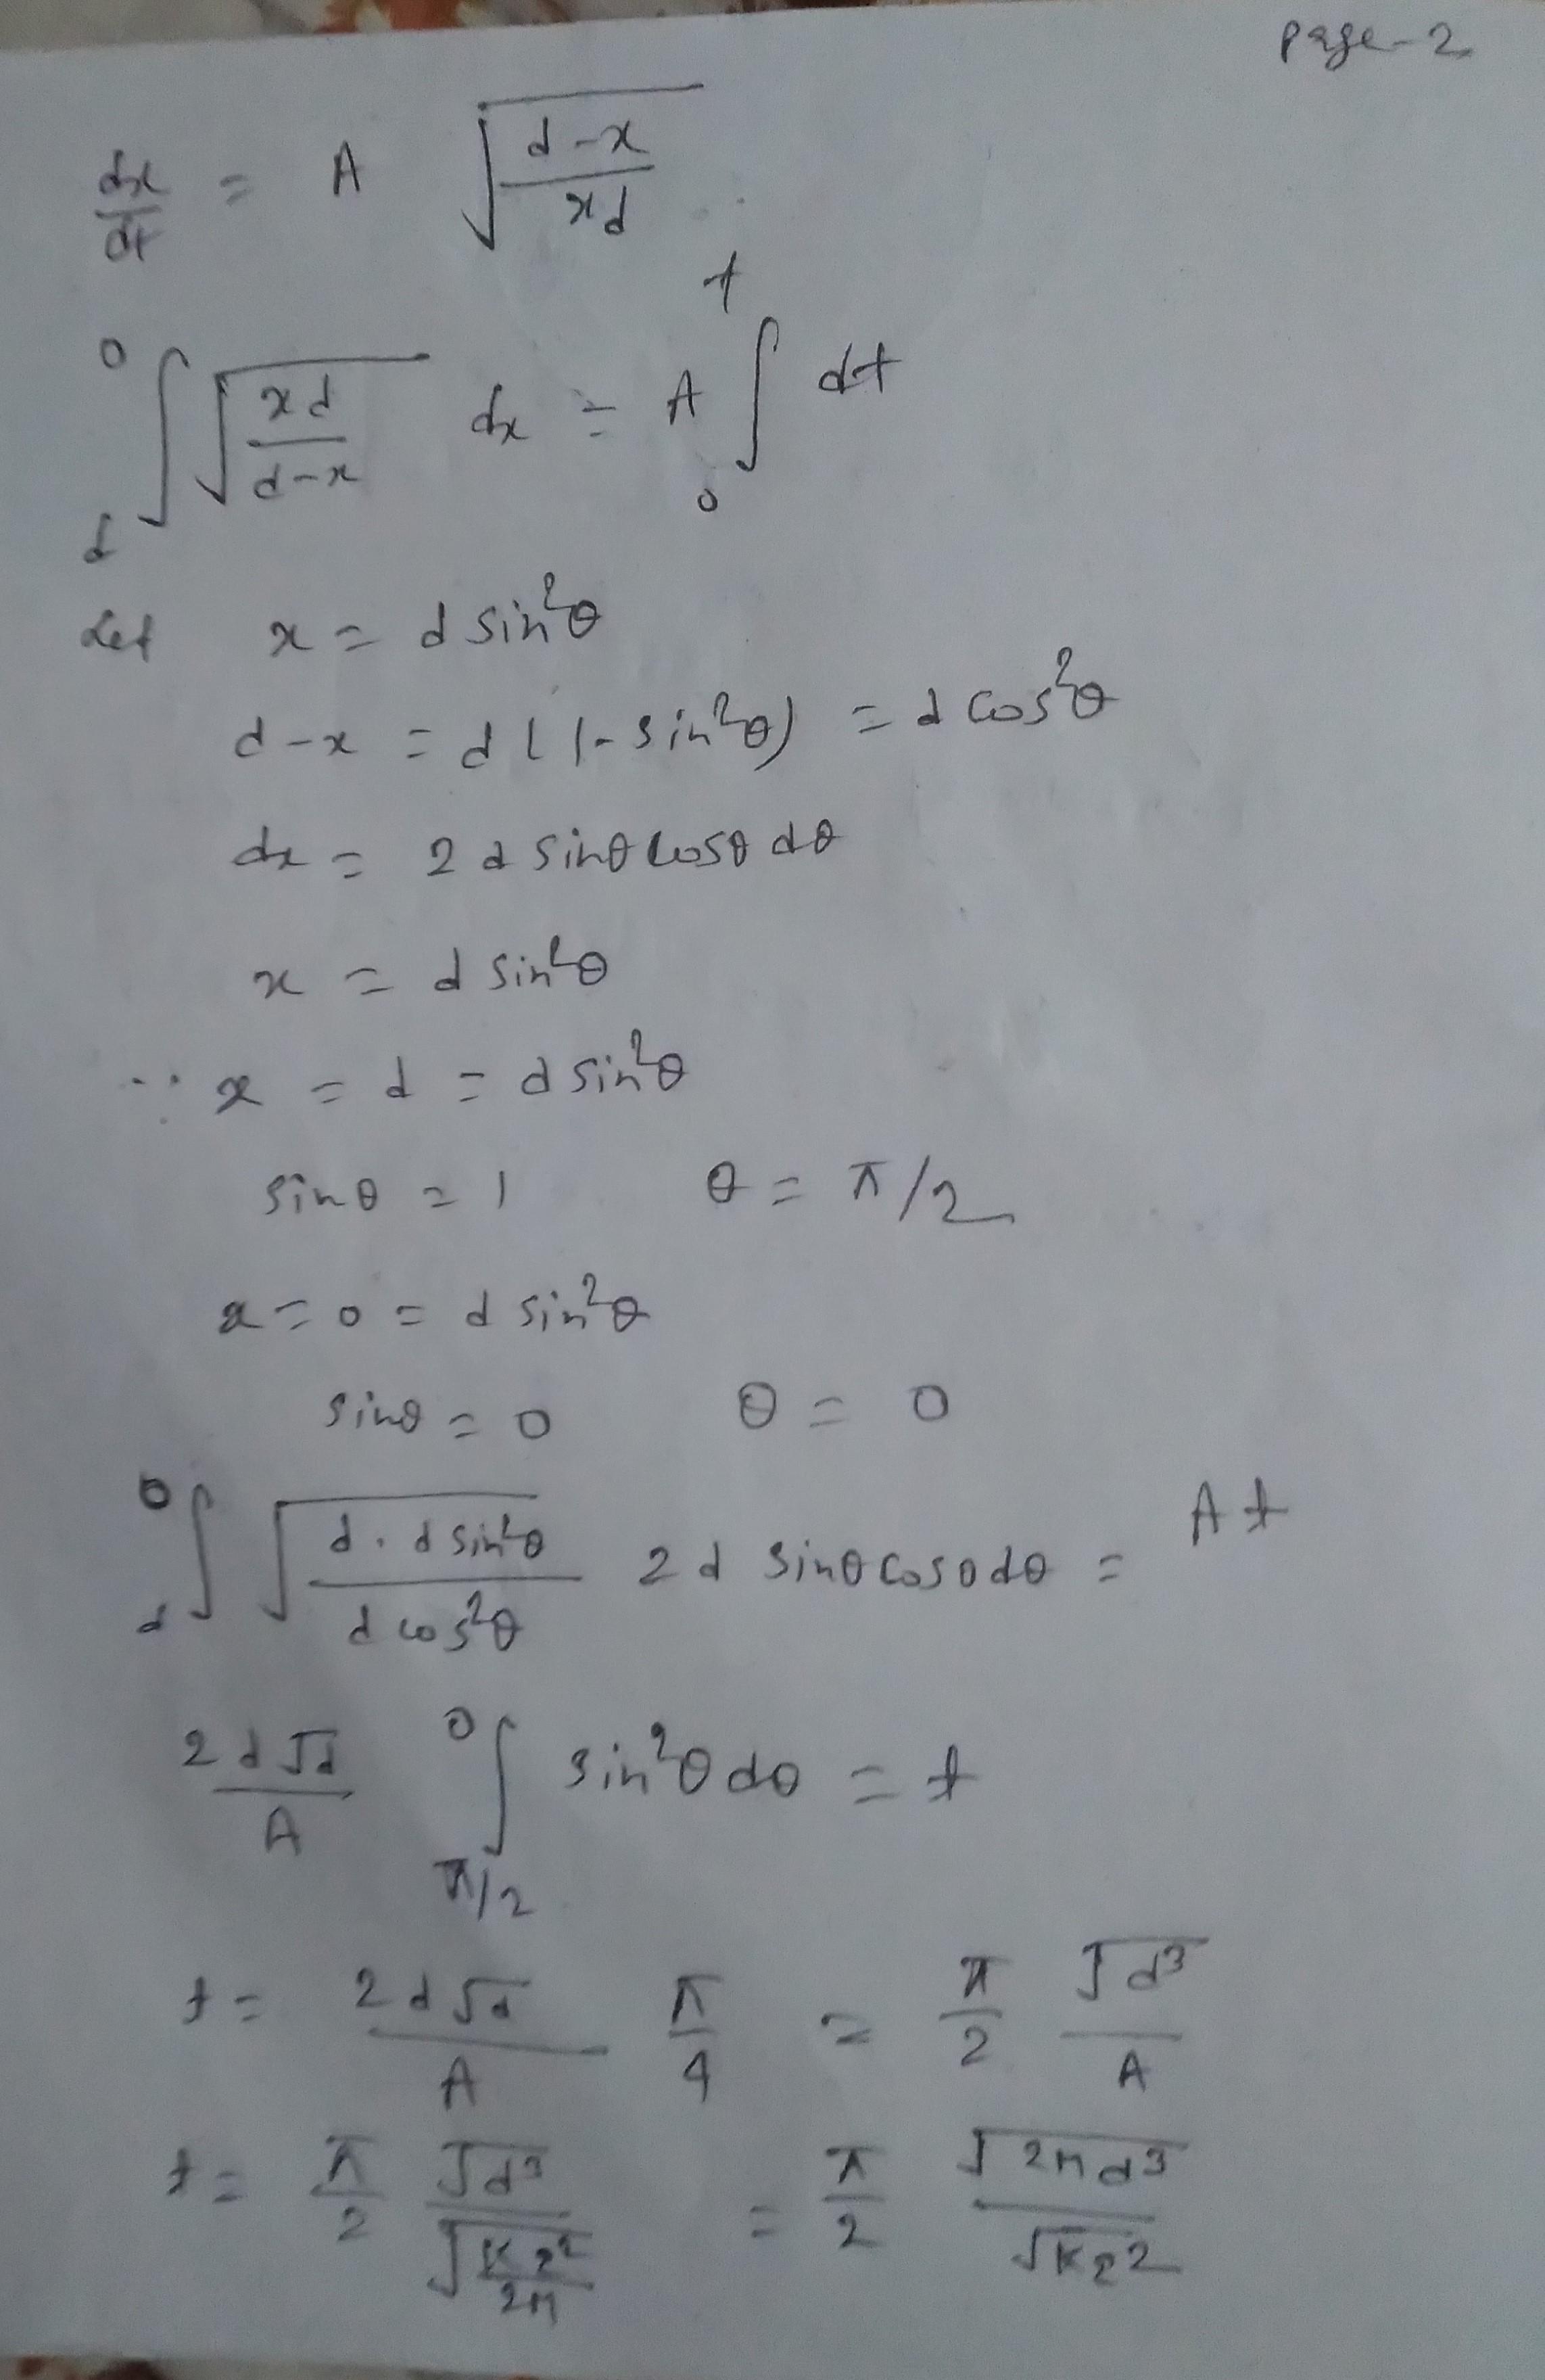 Page-2
dx/dt = A √((d-x)/(xd))
∫_d^0 √(xd/(d-x)) dx = A ∫_0^t dt
Let x = d sin²θ
d-x = d(1-sin²θ) = d cos²θ
dx = 2d sinθ cosθ dθ
x = d sin²θ
∵ x = d = d sin²θ
sinθ = 1 θ = π/2
x = 0 = d sin²θ
sinθ = 0 θ = 0
∫_d^0 √((d.d sin²θ)/(d cos²θ)) 2d sinθ cosθ dθ = At
(2d√d)/A ∫_{π/2}^0 sin²θ dθ = t
t = (2d√d)/A π/4 = π/2 √d³/A
t = π/2 √d³/√(K q²/2m) = π/2 √(2md³)/√(Kq²)